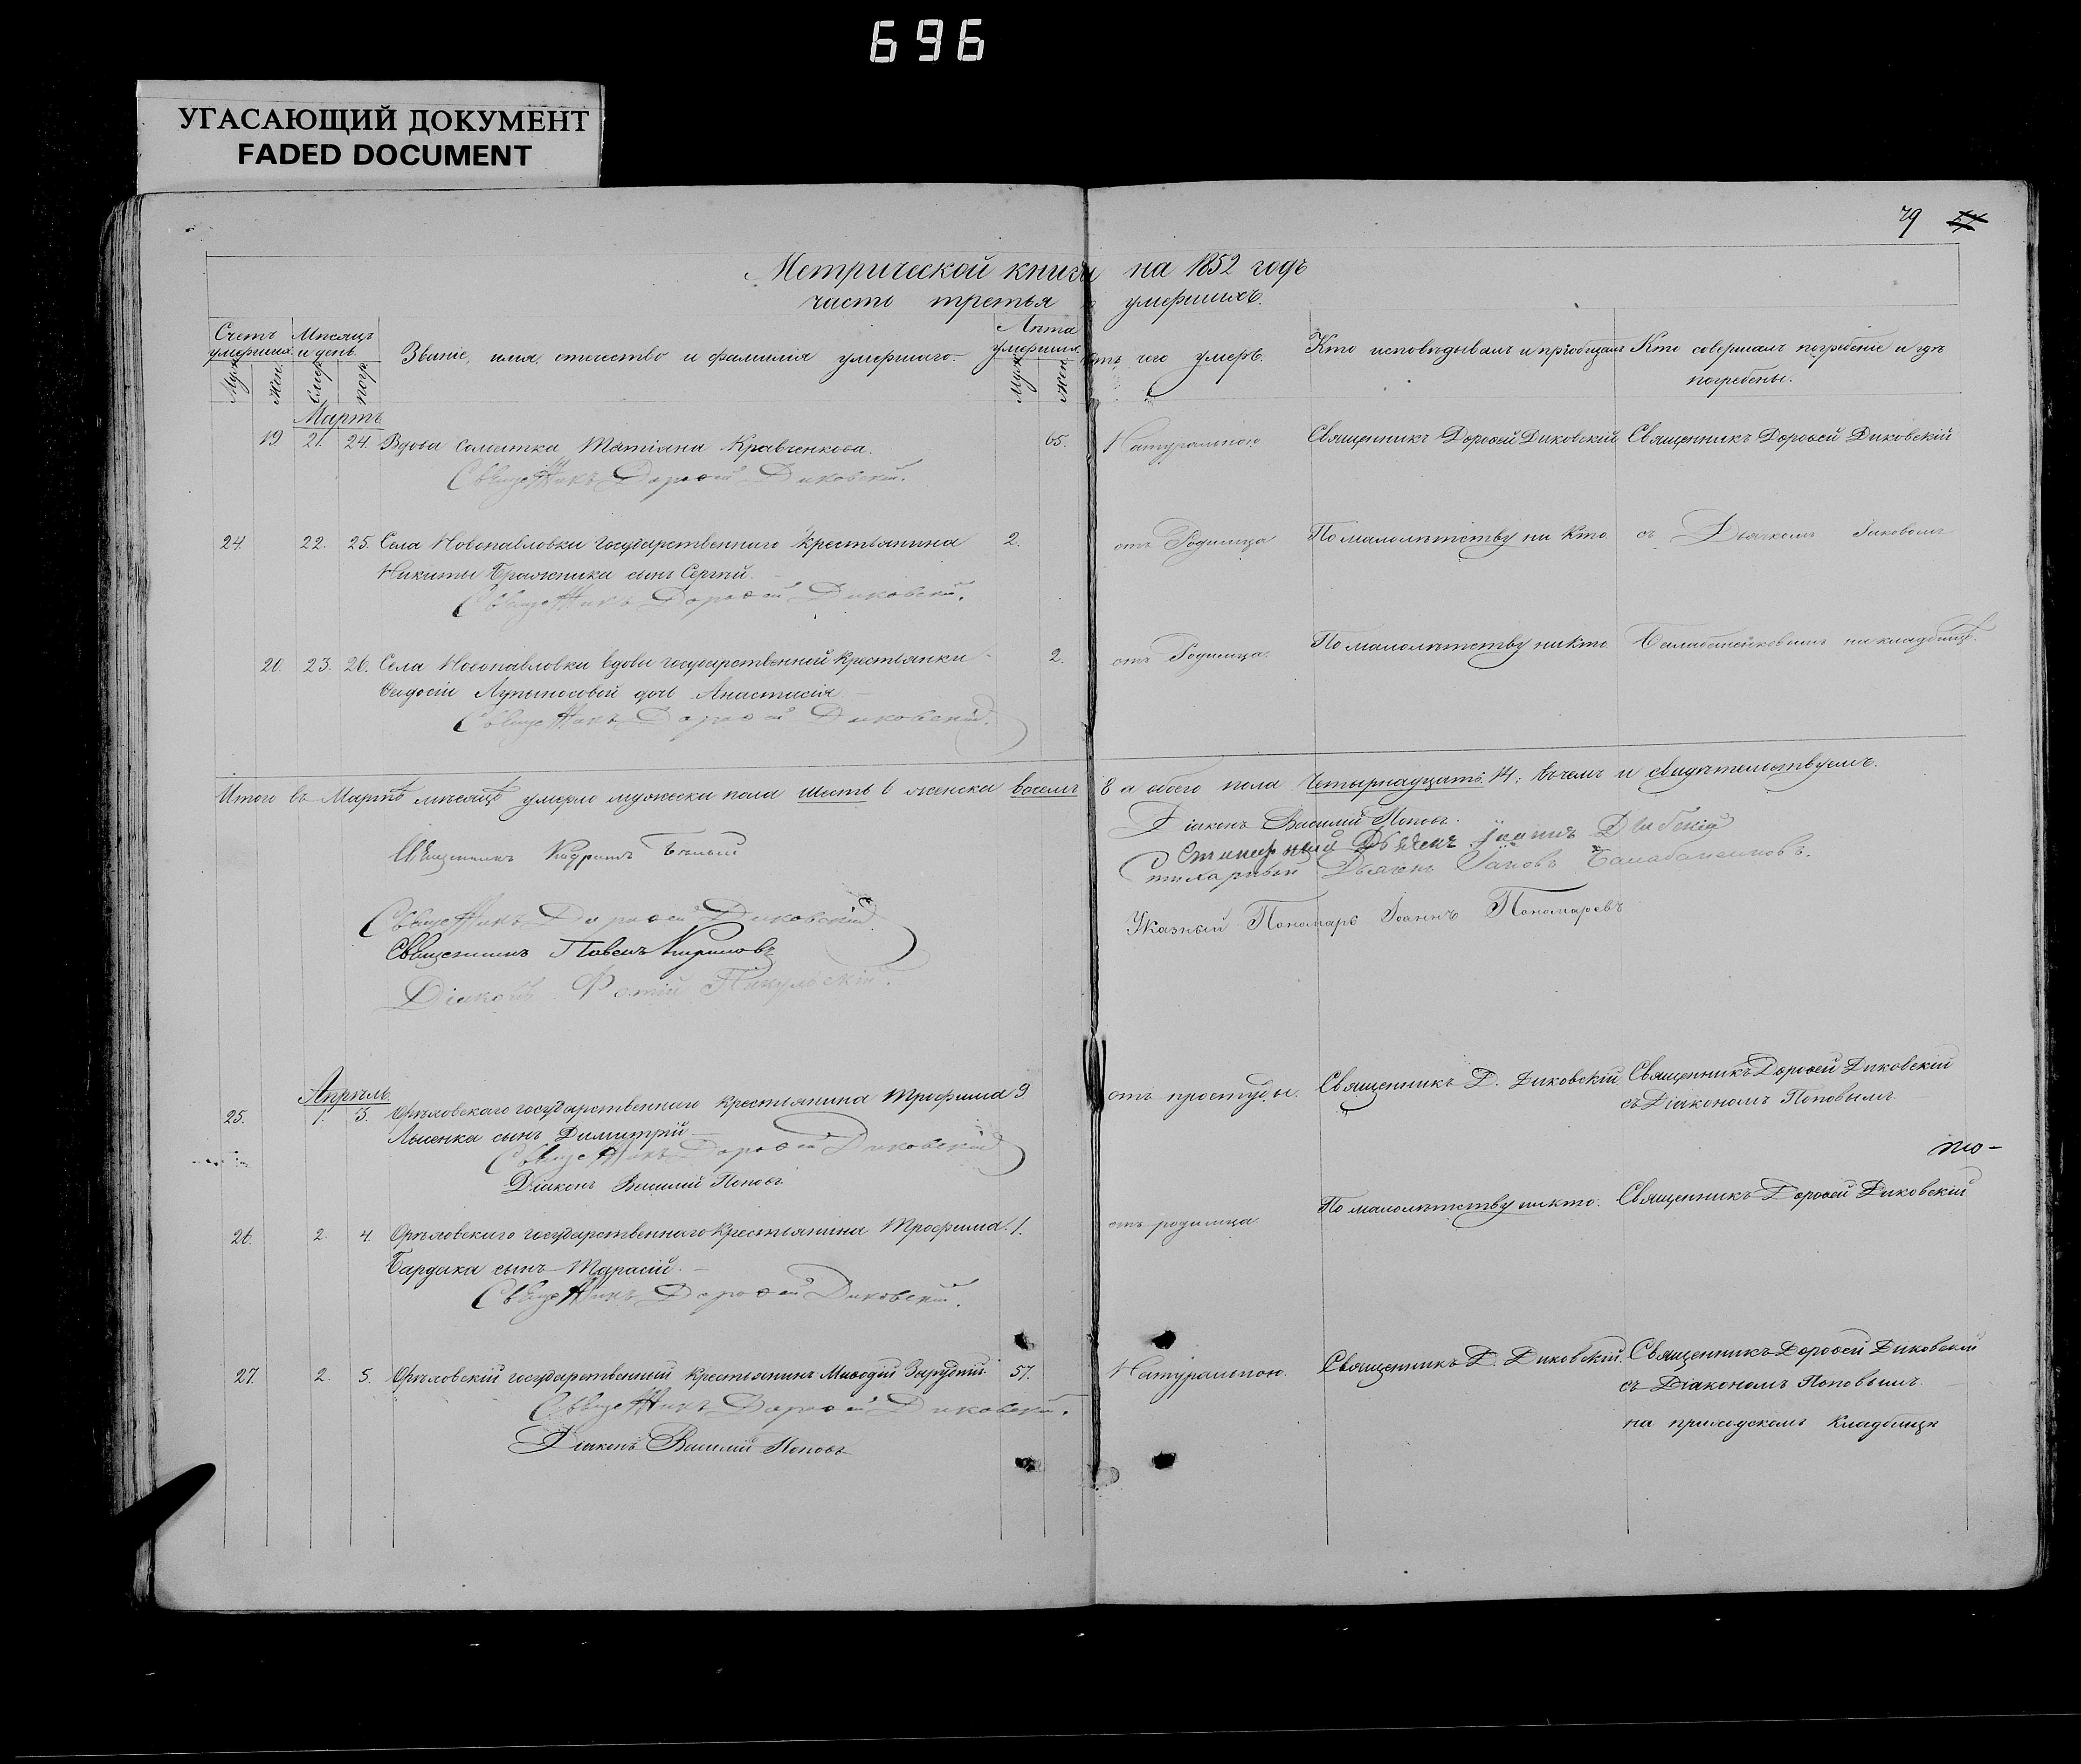 696
УГАСАЮЩИЙ ДОКУМЕНТ
FADED DOCUMENT
79
Метрической книги на 1852 годъ
часть третья умершихъ.
Счетъ умершихъ Мѣсяцъ и день Званіе, имя, отчество и фамилія умершаго. Лѣта умершихъ чего умеръ. Кто исповѣдывалъ и пріобщалъ Кто совершалъ погребеніе и гдѣ
погребены.
Муж. Жен. Смер. Погр. Муж. Жен.
Мартъ
19. 21. 24. Вдова Татіяна Кравченкова. 65. Натуральною Священникъ Дороѳей Диковскій Священникъ Дороѳей Диковскій
Дороѳей Диковскій.
24. 22. 25. Села Новопавловки государственнаго крестьянина 2. отъ Родимца По малолѣтству ни кто съ Дьячкомъ Іаковомъ
Никиты Бражника сынъ Сергѣй.
Дороѳей Диковскій.
20. 23. 26. Села Новопавловки вдовы государственной крестьянки 2. отъ Родимца. По малолѣтству никто. на кладбищѣ.
Ѳеодосіи дочь Анастасія
Дороѳей Диковскій.
Итого въ Мартѣ мѣсяцѣ умерло мужеска пола шесть 6 женска восемь 8 а обоего пола четырнадцать. 14. въ чемъ и свидѣтельствуемъ.
Діаконъ Василій Поповъ.
Іоаннъ
Стихарный Дьячекъ Іаковъ
Дороѳей Диковскій
Указный Пономарь Іоаннъ Пономаревъ
Священникъ Павелъ
Діаконъ Фотій
Апрѣль
25. 1. 3. Орѣховскаго государственнаго крестьянина Трофима 9 отъ простуды. Священникъ Д. Диковскій Священникъ Дороѳей Диковскій
сынъ Димитрій съ Діакономъ Поповымъ
Дороѳей Диковскій
Діаконъ Василій Поповъ
26. 2. 4. Орѣховскаго государственнаго крестьянина Трофима 1. отъ родимца По малолѣтству никто. Священникъ Дороѳей Диковскій
сынъ Тарасій.
Дороѳей Диковскій.
27. 2. 5. Орѣховскій государственный крестьянинъ Меѳодій 57. Натуральною. Священникъ Д. Диковскій. Священникъ Дороѳей Диковскій
Дороѳей Диковскій. съ Діакономъ Поповымъ
Діаконъ Василій Поповъ на приходскомъ кладбищѣ